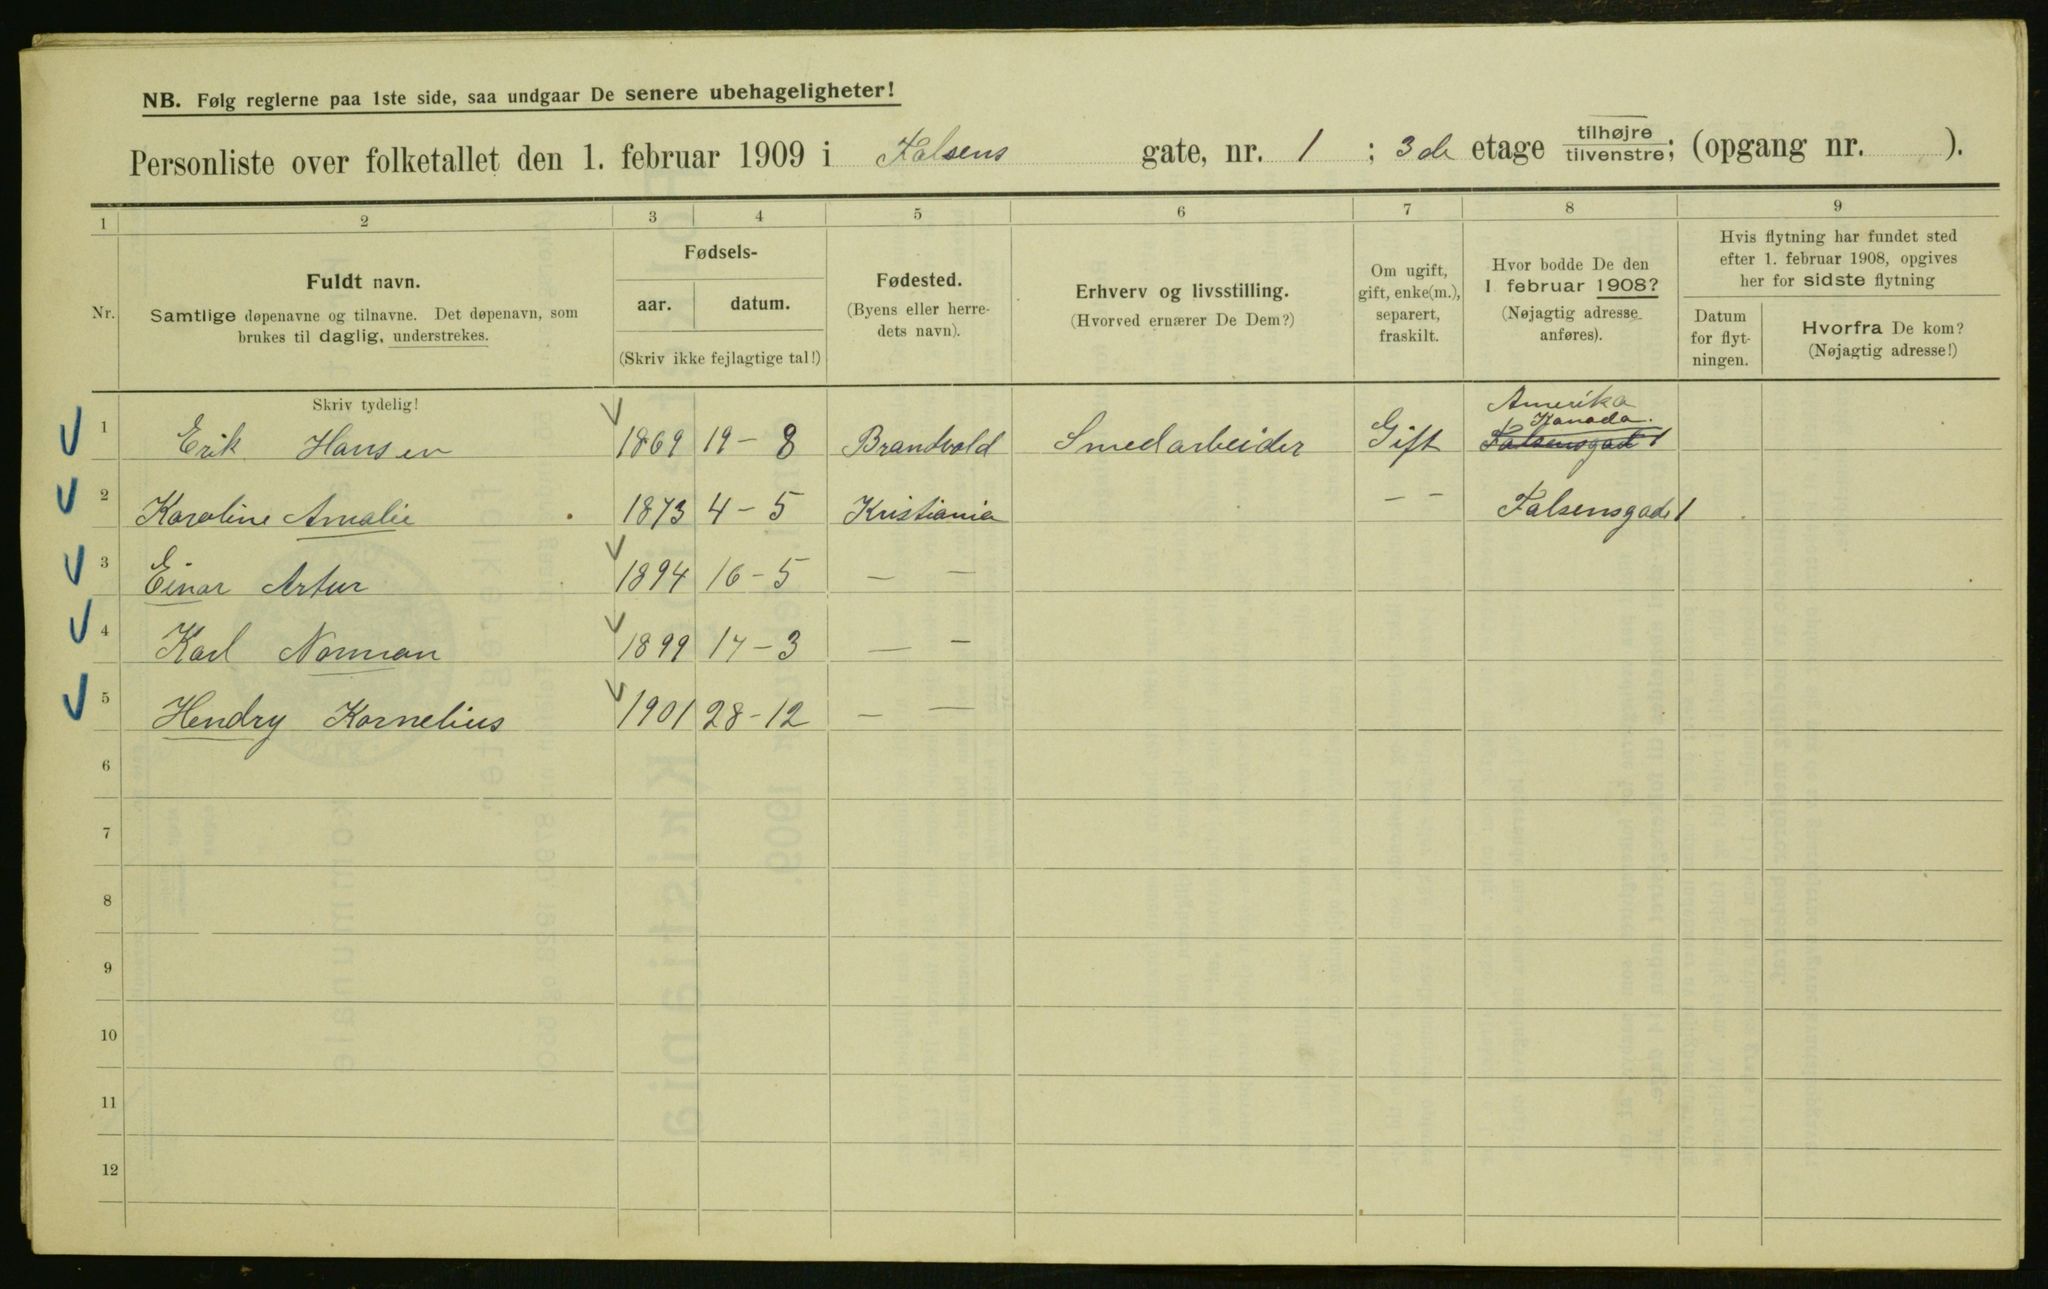 NB. Følg reglerne paa 1ste side, saa undgaar De senere ubehageligheter!
Personliste over folketallet den 1. februar 1909 i Falsens gate, nr. 1 ; 3de etage tilhøjre tilvenstre; (opgang nr. ).
1 2 3 4 5 6 7 8 9
Nr.
Fuldt navn.
Samtlige døpenavne og tilnavne. Det døpenavn, som
brukes til daglig, understrekes.
Fødsels-
aar. datum.
(Skriv ikke fejlagtige tal!)
Fødested.
(Byens eller herre-
dets navn).
Erhverv og livsstilling.
(Hvorved ernærer De Dem?)
Om ugift,
gift, enke(m.),
separert,
fraskilt.
Hvor bodde De den
1 februar 1908?
(Nøjagtig adresse
anføres).
Hvis flytning har fundet sted
efter 1. februar 1908, opgives
her for sidste flytning
Datum
for flyt-
ningen.
Hvorfra De kom?
(Nøjagtig adresse!)
Skriv tydelig!
Amerika
Kanada.
1 Erik Hansen 1869 19-8 Brandvold Smedarbeider Gift Falsensgade 1
2 Karoline Amalie 1873 4-5 Kristiania – – Falsensgade 1
3 Einar Artur 1894 16-5 — —
4 Karl Norman 1899 17-3 — —
5 Hendry Kornelius 1901 28-12 — —
6
7
8
9
10
11
12